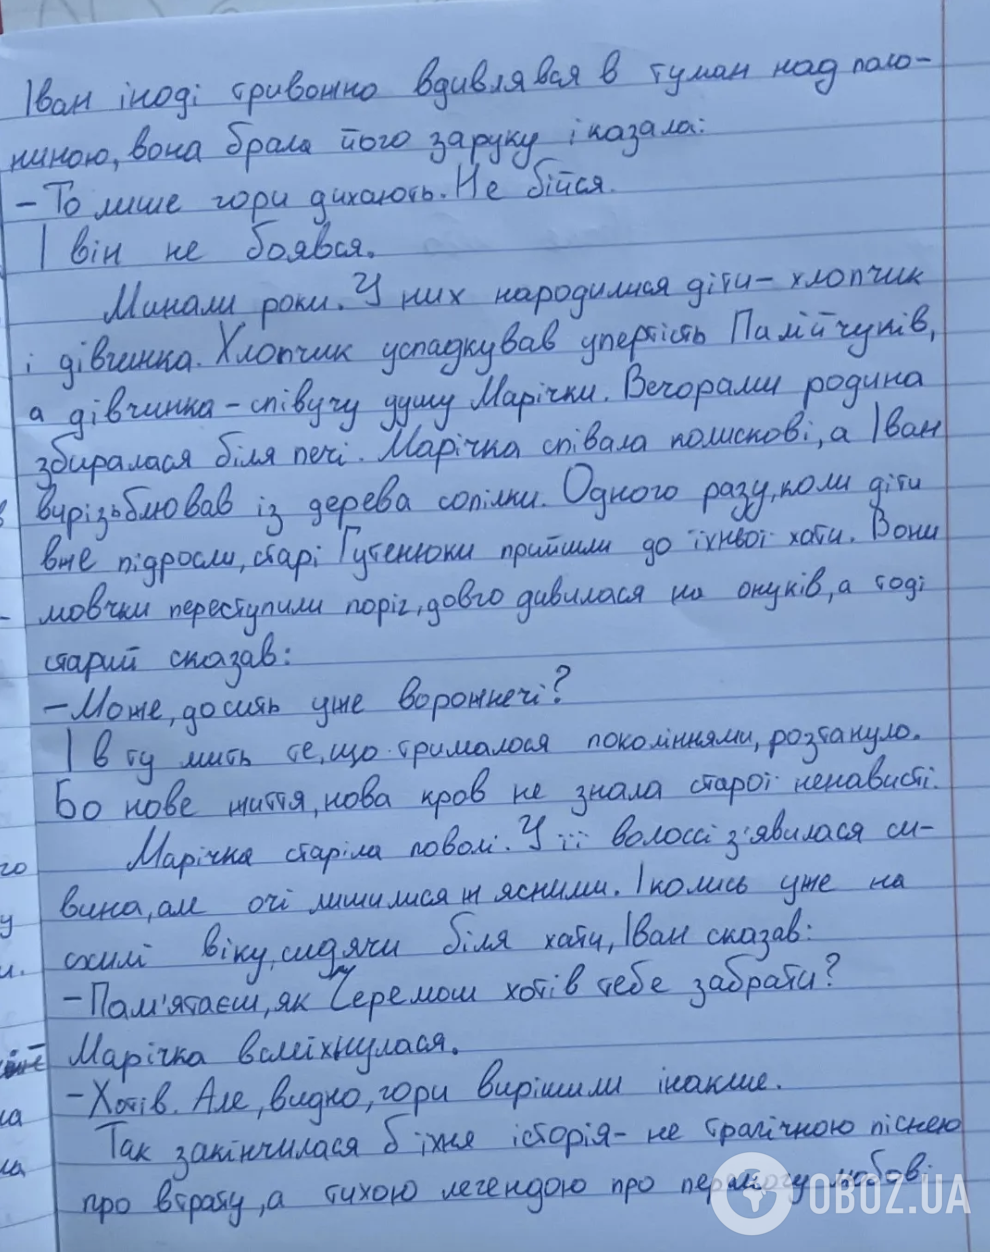 Іван іноді тривожно вдивлявся в туман над поло-
ниною, вона брала його за руку і казала:
– То лише гори дихають. Не бійся.
І він не боявся.
Минали роки. У них народилися діти – хлопчик
і дівчинка. Хлопчик успадкував упертість Палійчуків,
а дівчинка – співучу душу Марічки. Вечорами родина
збиралася біля печі. Марічка співала колискові, а Іван
вирізьблював із дерева сопілки. Одного разу, коли діти
вже підросли, старі Гутенюки прийшли до їхньої хати. Вони
мовчки переступили поріг, довго дивилася на онуків, а тоді
старий сказав:
– Може, досить уже ворожнечі?
І в ту мить те, що трималося поколіннями, розтануло.
Бо нове життя, нова кров не знала старої ненависті.
Марічка старіла поволі. У її волоссі з'явилася си-
вина, але очі лишилися ж ясними. І колись уже на
схилі віку, сидячи біля хати, Іван сказав:
– Пам'ятаєш, як Черемош хотів тебе забрати?
Марічка всміхнулася.
– Хотів. Але, видно, гори вирішили інакше.
Так закінчилася б їхня історія – не трагічною піснею
про втрату, а тихою легендою про перемогу любові.
OBOZ.UA